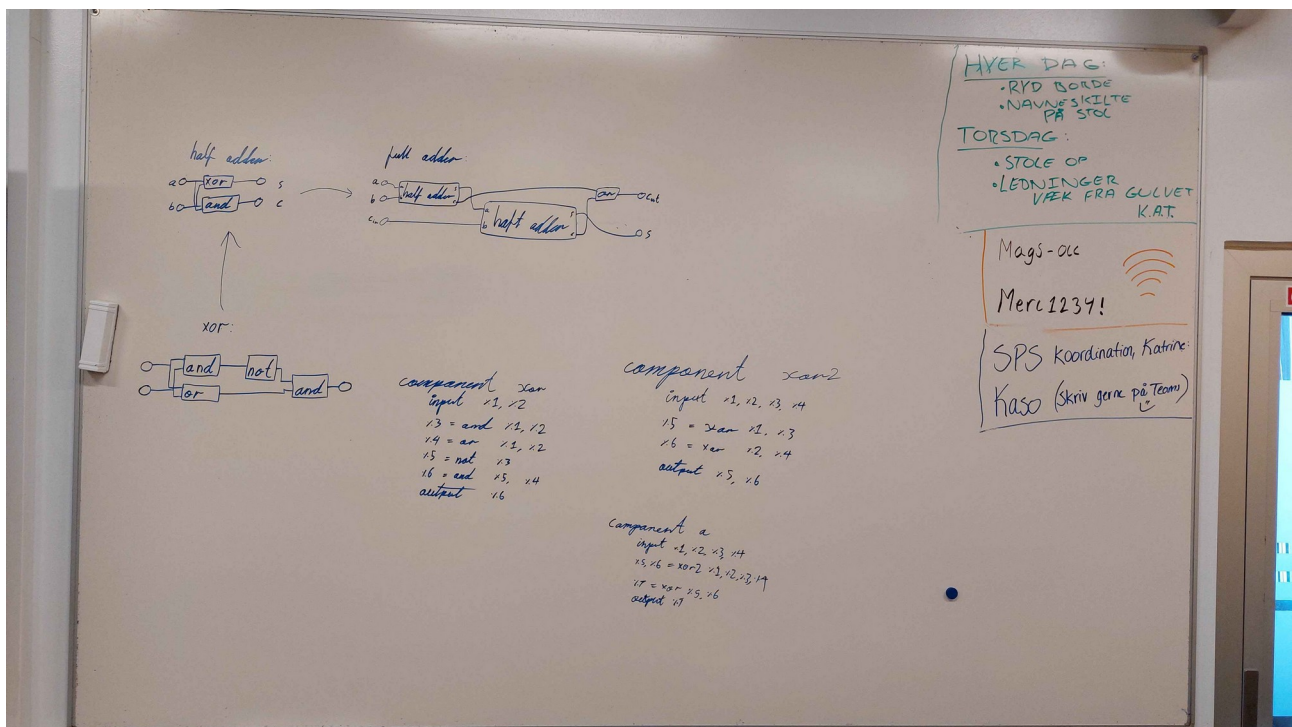 half adder:
a xor s
b and c
full adder:
a half adder or Cout
b
Cin a half adder s
b
xor:
and not
or and
component xor
input %1, %2
%3 = and %1, %2
%4 = or %1, %2
%5 = not %3
%6 = and %5, %4
output %6
component xor2
input %1, %2, %3, %4
%5 = xor %1, %3
%6 = xor %2, %4
output %5, %6
component a
input %1, %2, %3, %4
%5, %6 = xor2 %1, %2, %3, %4
%7 = xor %5, %6
output %7
HVER DAG:
• RYD BORDE
• NAVNESKILTE
PÅ STOL
TORSDAG:
• STOLE OP
• LEDNINGER
VÆK FRA GULVET
K.A.T.
Mags-olc
Merc1234!
SPS koordination, Katrine:
Kaso (skriv gerne på Teams)